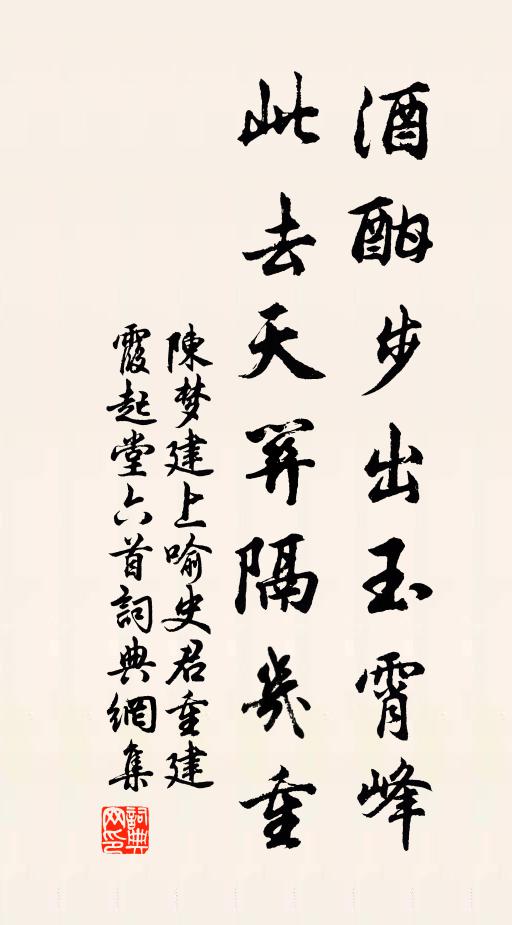 酒酣步出玉霄峰
此去天關隔幾重
陳梦建上喻史君重建
霞起堂六首詞典網集
詞典
网印